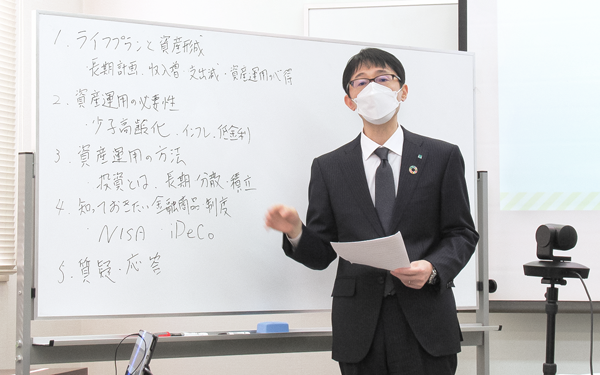 1. ライフプランと資産形成
・長期計画、収入増・支出減・資産運用が必须
2. 資産運用の必要性
・少子高齢化、インフレ、低金利
3. 資産運用の方法
・投資とは、長期 分散 積立
4. 知っておきたい金融商品・制度
・NISA ・iDeCo
5. 質疑・応答